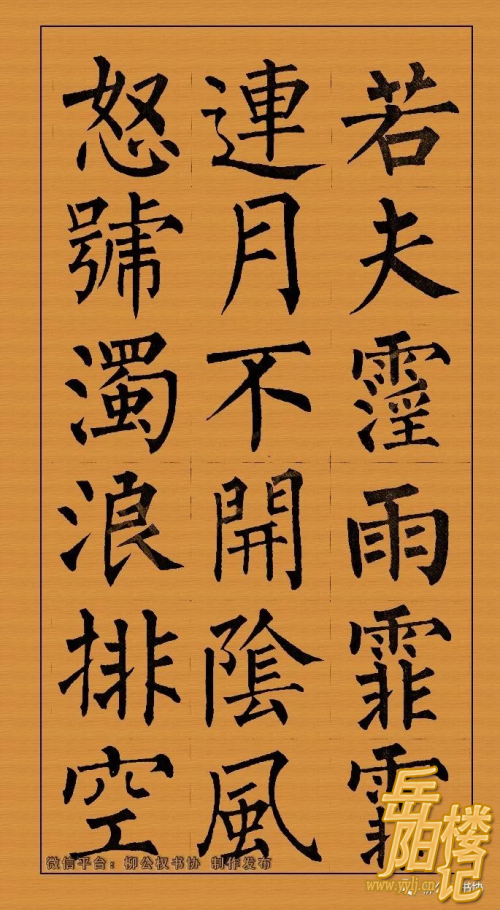 若夫霪雨霏霏
連月不開陰風
怒號濁浪排空
微信平台：柳公权书协 制作发布
岳阳楼记
www.yylj.cn
书协